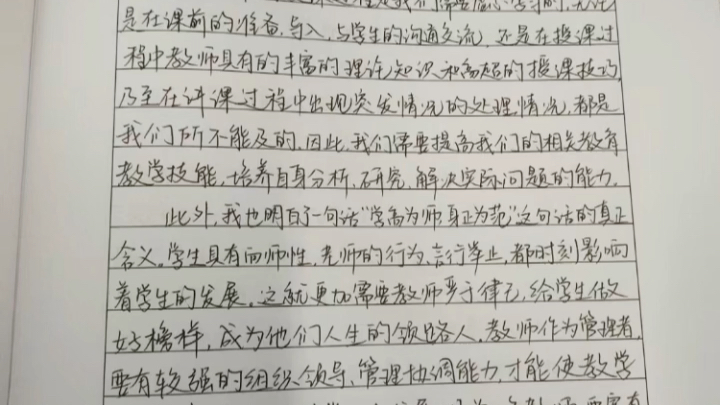 是在课前的准备,导入,与学生的沟通交流,还是在授课过
程中教师具有的丰富的理论知识和高超的授课技巧,
乃至在讲课过程中出现突发情况的处理情况,都是
我们所不能及的.因此,我们需要提高我们的相关教育
教学技能,培养自身分析、研究、解决实际问题的能力.
此外,我也明白了一句话“学高为师 身正为范”这句话的真正
含义。学生具有向师性,老师的行为、言行举止,都时刻影响
着学生的发展。这就更加需要教师严于律己,给学生做
好榜样,成为他们人生的领路人。教师作为管理者,
要有较强的组织领导、管理协调能力,才能使教学